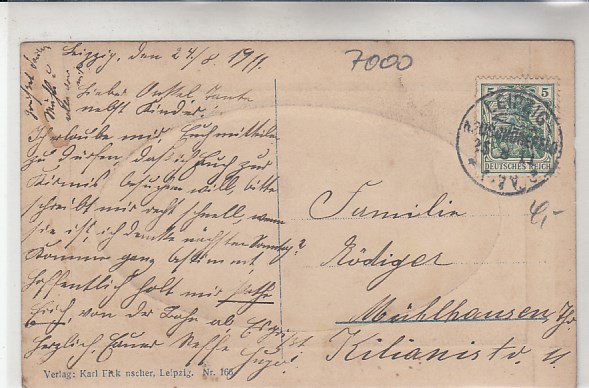 Leipzig, den 24/8 1911.
7000
Liebe Onkel Tante
nebst Kinder.
Ich erlaube mir, Euch mitteilen
zu dürfen, daß ich Euch zur
Kirmis besuchen will, bitte
schreibt mir recht schnell, wenn
sie ist, ich denke nächsten Sonntag?
Komme ganz bestimmt,
hoffentlich holt mir Pathe
Erich, von der Bahn ab. Es grüßt
herzlich, Eurer Neffe Hugo!
5 5
DEUTSCHES REICH
LEIPZIG
Familie
Rödiger
Mühlhausen, Th.
Kilianistr.
Verlag: Karl nscher, Leipzig. Nr. 166